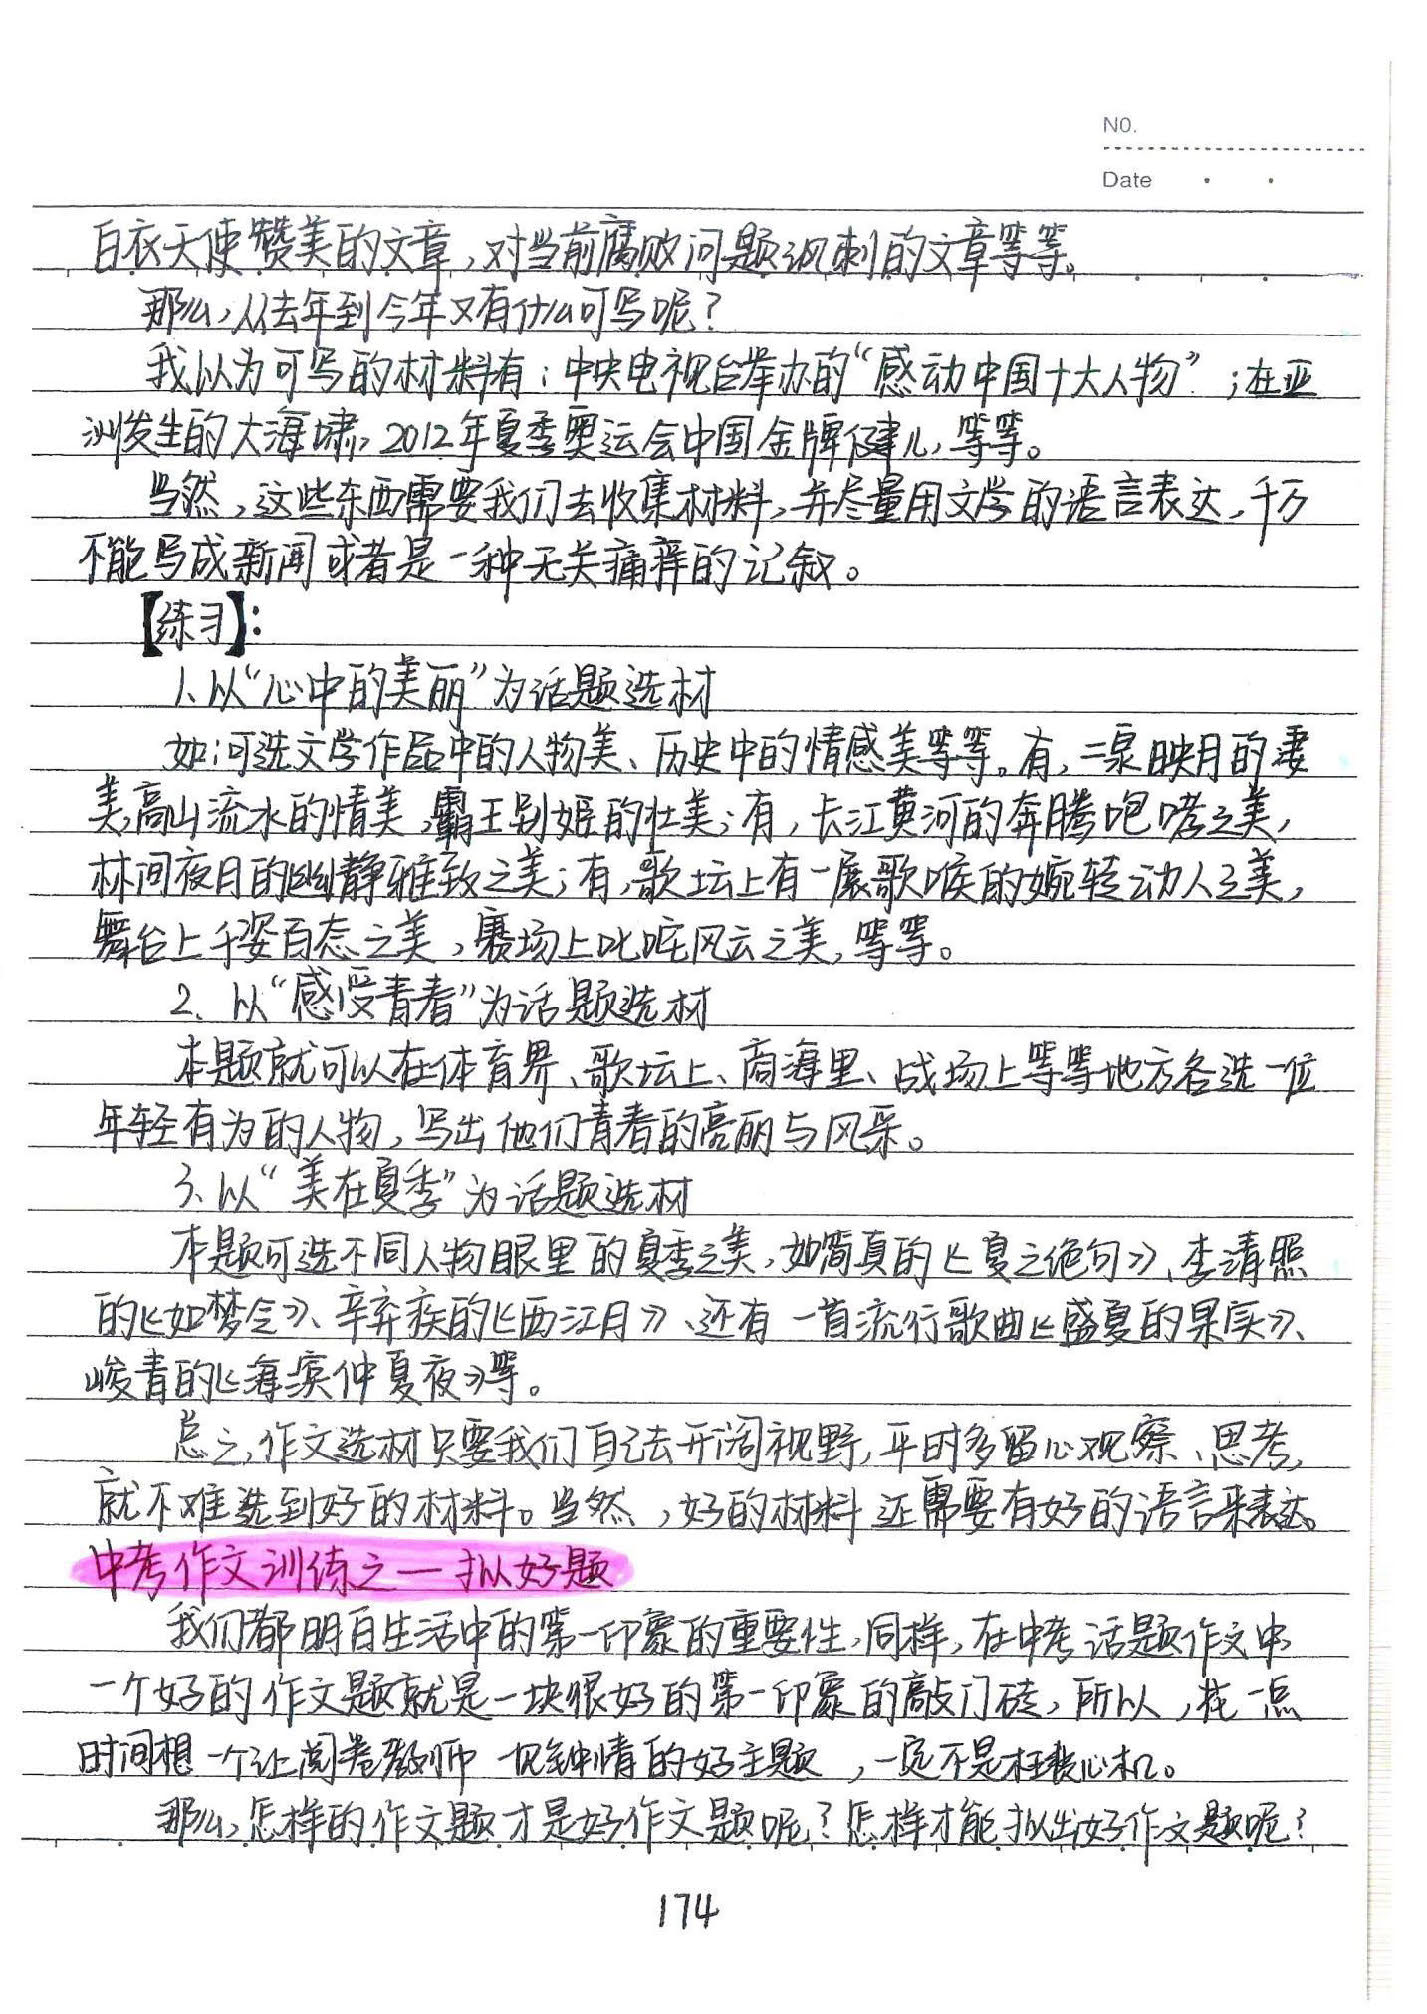 NO.
Date
白衣天使赞美的文章,对当前腐败问题讽刺的文章等等。
那么,从去年到今年又有什么可写呢?
我以为可写的材料有:中央电视台举办的“感动中国十大人物”;在亚
洲发生的大海啸,2012年夏季奥运会中国金牌健儿,等等。
当然,这些东西需要我们去收集材料,并尽量用文学的语言表达,千万
不能写成新闻或者是一种无关痛痒的记叙。
【练习】:
1、以“心中的美丽”为话题选材
如:可选文学作品中的人物美、历史中的情感美等等。有,二泉映月的凄
美,高山流水的情美,霸王别姬的壮美;有,长江黄河的奔腾咆哮之美,
林间夜月的幽静雅致之美;有,歌坛上有一展歌喉的婉转动人之美,
舞台上千姿百态之美,赛场上叱咤风云之美,等等。
2、以“感受青春”为话题选材
本题就可以在体育界、歌坛上、商海里、战场上等等地方各选一位
年轻有为的人物,写出他们青春的亮丽与风采。
3、以“美在夏季”为话题选材
本题可选不同人物眼里的夏季之美,如简真的《夏之绝句》、李清照
的《如梦令》、辛弃疾的《西江月》、还有一首流行歌曲《盛夏的果实》、
峻青的《海滨仲夏夜》等。
总之,作文选材只要我们自己去开阔视野,平时多留心观察、思考,
就不难选到好的材料。当然,好的材料还需要有好的语言来表达。
中考作文训练之一拟好题
我们都明白生活中的第一印象的重要性,同样,在中考话题作文中
一个好的作文题就是一块很好的第一印象的敲门砖,所以,花一点
时间想一个让阅卷教师一见钟情的好主题,一定不是枉费心机。
那么,怎样的作文题才是好作文题呢?怎样才能拟出好作文题呢?
174